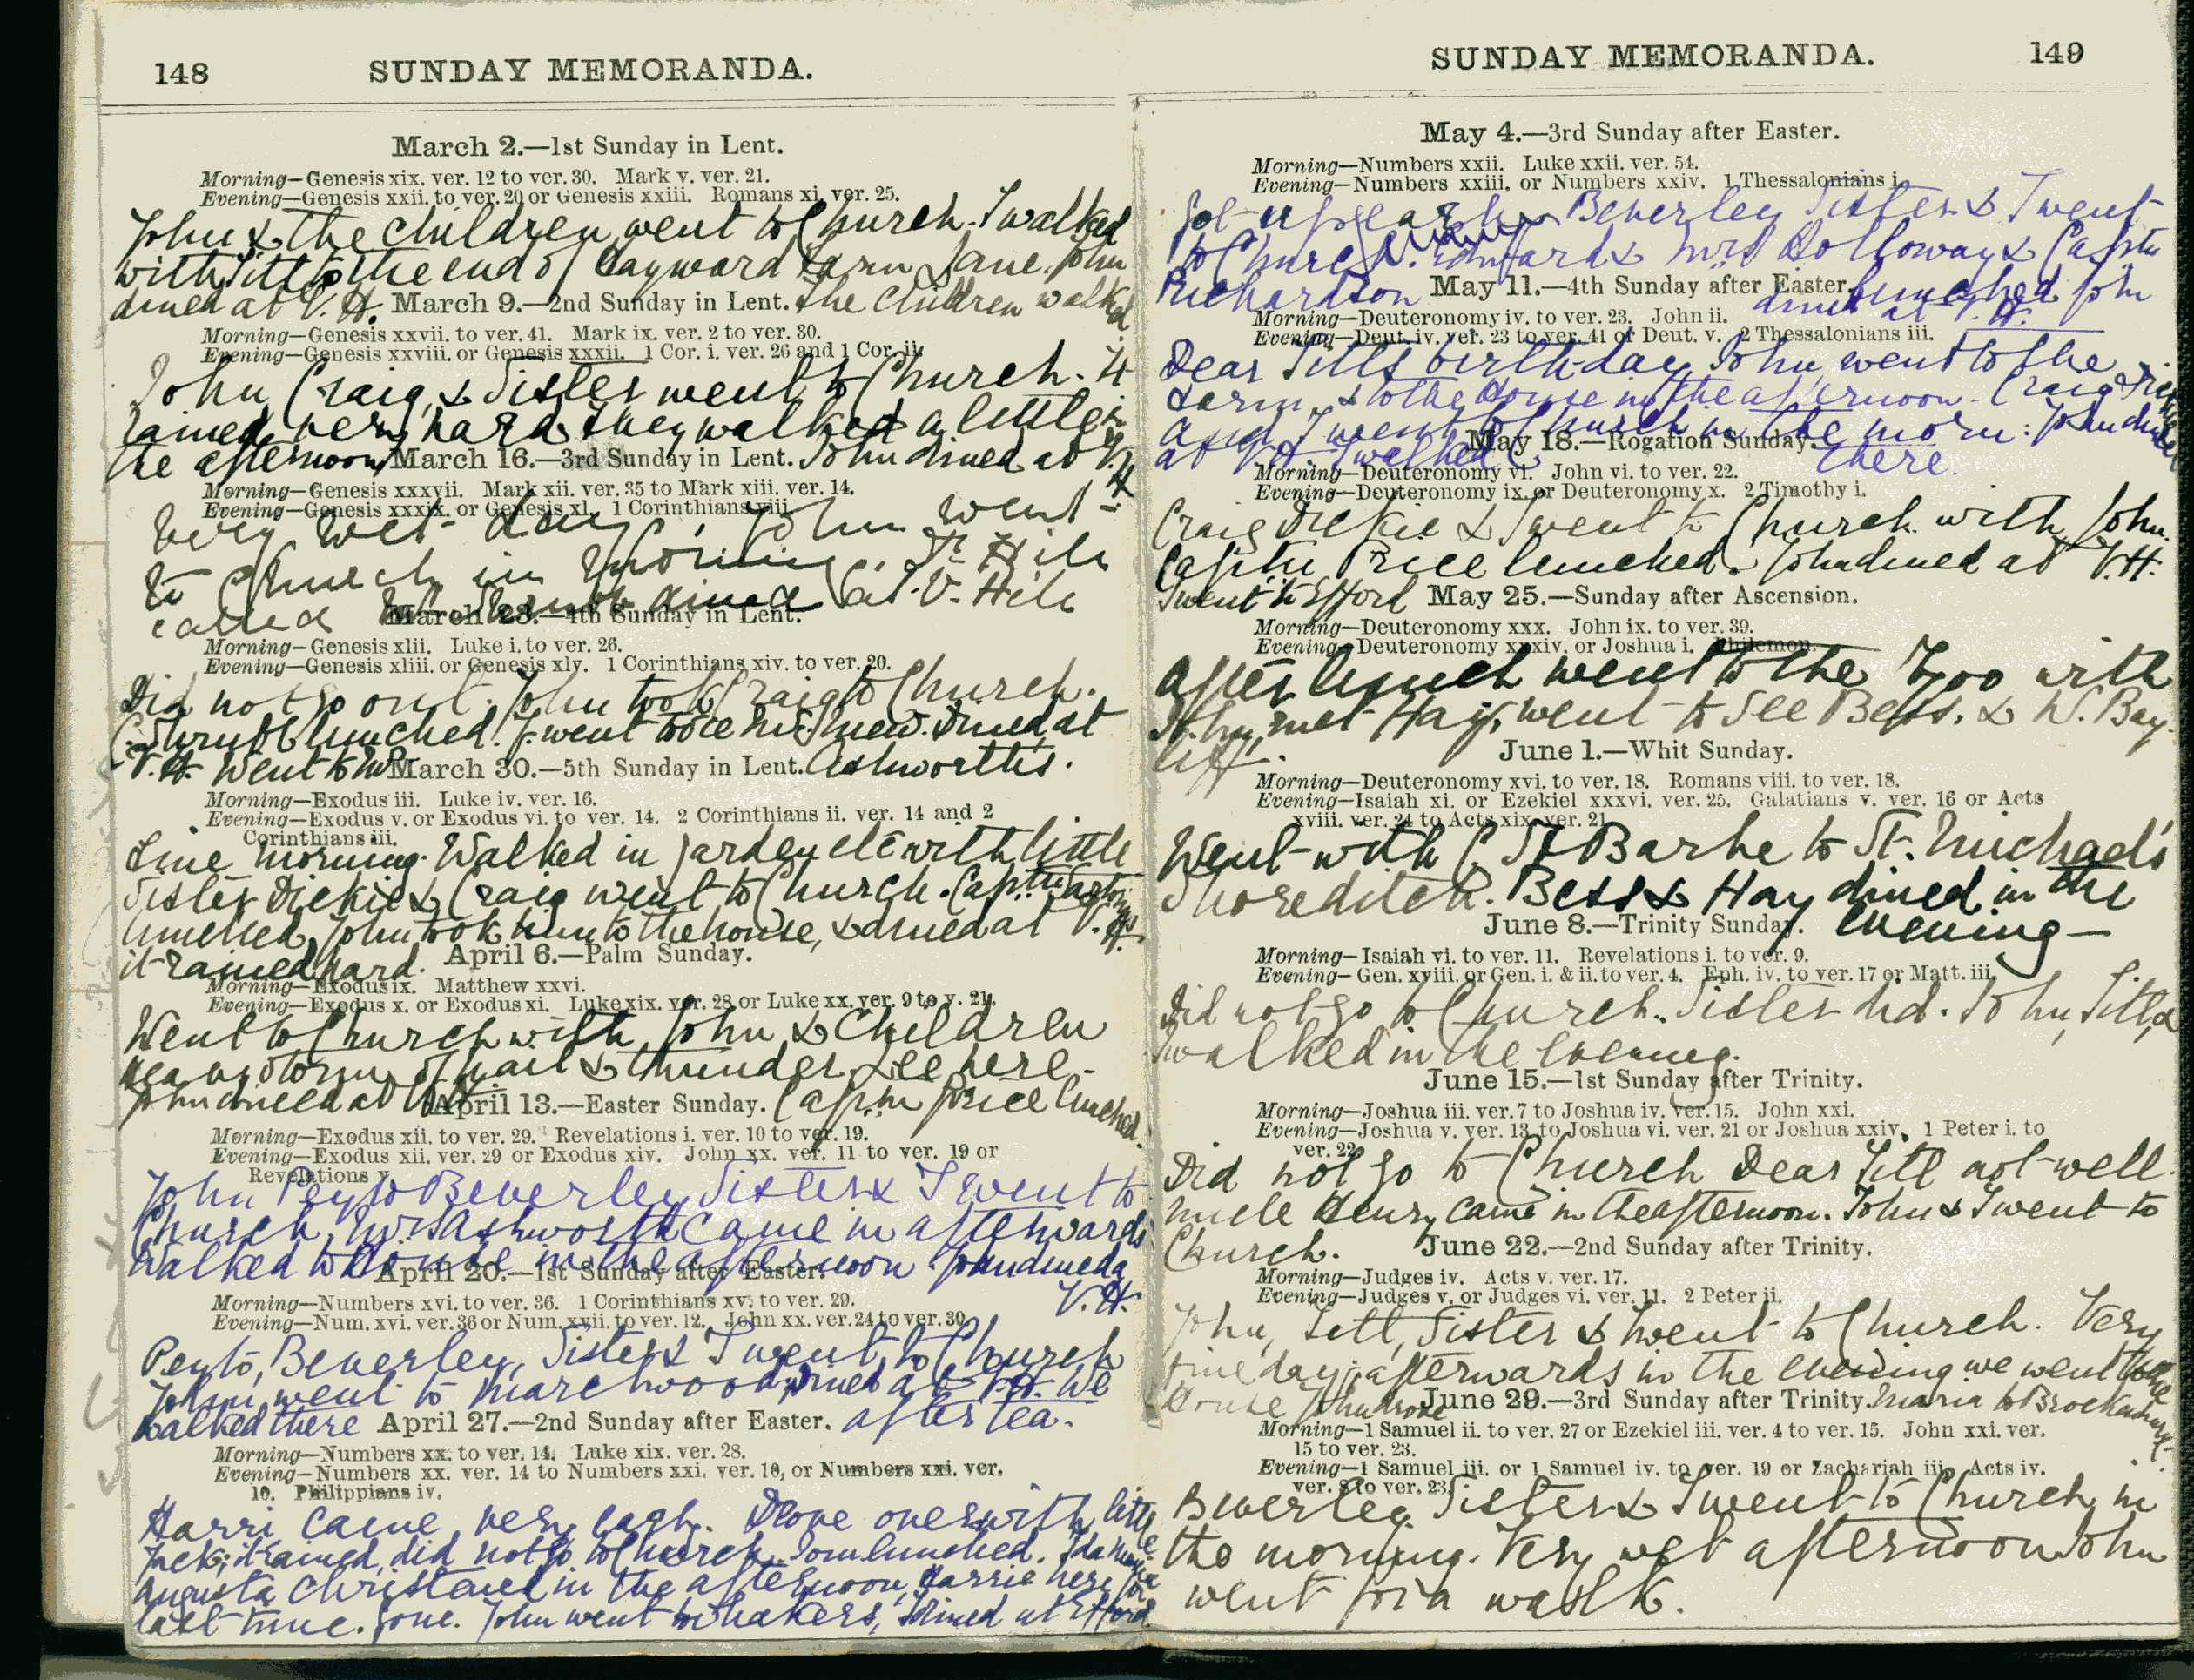 148 SUNDAY MEMORANDA.
March 2.—1st Sunday in Lent.
Morning—Genesis xix. ver. 12 to ver. 30. Mark v. ver. 21.
Evening—Genesis xxii. to ver. 20 or Genesis xxiii. Romans xi. ver. 25.
John & the children went to Church. I walked
with Titt to the end of Hayward Farm Lane. John
dined at V. H. March 9.—2nd Sunday in Lent. The children walked
Morning—Genesis xxvii. to ver. 41. Mark ix. ver. 2 to ver. 30.
Evening—Genesis xxviii. or Genesis xxxii. 1 Cor. i. ver. 26 and 1 Cor. ii.
John, Craig, & Sister went to Church. It
rained very hard they walked a little in
the afternoon March 16.—3rd Sunday in Lent. John dined at V. H
Morning—Genesis xxxvii. Mark xii. ver. 35 to Mark xiii. ver. 14.
Evening—Genesis xxxix. or Genesis xl. 1 Corinthians xiii.
Very wet day, John went
to Church in Morning. Hill
called dined at V. Hill
March 23.—4th Sunday in Lent.
Morning—Genesis xlii. Luke i. to ver. 26.
Evening—Genesis xliii. or Genesis xlv. 1 Corinthians xiv. to ver. 20.
Did not go out. John took Craig to Church.
lunched. J. went to see Dined at
V. H. Went to March 30.—5th Sunday in Lent. Ashworth's.
Morning—Exodus iii. Luke iv. ver. 16.
Evening—Exodus v. or Exodus vi. to ver. 14. 2 Corinthians ii. ver. 14 and 2
Corinthians iii.
Fine morning. Walked in garden etc with little
Sister Dickie & Craig went to Church. Captn
lunched, John took him to the house, & dined at V. H.
it rained hard. April 6.—Palm Sunday.
Morning—Exodus ix. Matthew xxvi.
Evening—Exodus x. or Exodus xi. Luke xix. ver. 28 or Luke xx. ver. 9 to v. 21.
Went to Church with John & Children
storm of hail & thunder here.
John dined at V.H April 13.—Easter Sunday. Captn Price lunched.
Morning—Exodus xii. to ver. 29. Revelations i. ver. 10 to ver. 19.
Evening—Exodus xii. ver. 29 or Exodus xiv. John xx. ver. 11 to ver. 19 or
Revelations v.
John Peyto Beverley Sister & I went to
Church, Mrs Ashworth came in afterwards
Walked to House in the afternoon. John dined at
April 20.—1st Sunday after Easter. V. H.
Morning—Numbers xvi. to ver. 36. 1 Corinthians xv. to ver. 29.
Evening—Num. xvi. ver. 36 or Num. xvii. to ver. 12. John xx. ver. 24 to ver. 30.
Peyto, Beverley, Sister & I went to Church
John went to Marchwood, dined at V.H. We
walked there April 27.—2nd Sunday after Easter. after tea.
Morning—Numbers xx. to ver. 14. Luke xix. ver. 28.
Evening—Numbers xx. ver. 14 to Numbers xxi. ver. 10, or Numbers xxi. ver.
10. Philippians iv.
Harri came very early. Drove over with little
Jack; it rained, did not go to Church. Tom lunched. Ida
Augusta Christened in the afternoon, Harrie here for
last time. gone. John went to Shakers, dined at Efford
SUNDAY MEMORANDA. 149
May 4.—3rd Sunday after Easter.
Morning—Numbers xxii. Luke xxii. ver. 54.
Evening—Numbers xxiii. or Numbers xxiv. 1 Thessalonians i.
Got up Beverley Sister & I went
to Church. & Mrs Holloway & Captn
Richardson May 11.—4th Sunday after Easter. lunched John
dined at V. H.
Morning—Deuteronomy iv. to ver. 23. John ii.
Evening—Deut. iv. ver. 23 to ver. 41 or Deut. v. 2 Thessalonians iii.
Dear Titts birthday, John went to the
Farm, & to the House in the afternoon. Craig Dickie
and I went to Church in the morn: John dined
at V.H. I walked May 18.—Rogation Sunday. there.
Morning—Deuteronomy vi. John vi. to ver. 22.
Evening—Deuteronomy ix. or Deuteronomy x. 2 Timothy i.
Craig Dickie & I went to Church with John.
Captn Price lunched. John dined at V.H.
I went to Efford May 25.—Sunday after Ascension.
Morning—Deuteronomy xxx. John ix. to ver. 39.
Evening—Deuteronomy xxxiv. or Joshua i. Philemon.
After lunch went to the Zoo with
John, met Hay, went to see Bess, & W. Bay
liff.
June 1.—Whit Sunday.
Morning—Deuteronomy xvi. to ver. 18. Romans viii. to ver. 18.
Evening—Isaiah xi. or Ezekiel xxxvi. ver. 25. Galatians v. ver. 16 or Acts
xviii. ver. 24 to Acts xix. ver. 21.
Went with C. St Barbe to St. Michael's
Shoreditch. Bess & Hay dined in the
June 8.—Trinity Sunday. evening—
Morning—Isaiah vi. to ver. 11. Revelations i. to ver. 9.
Evening—Gen. xviii. or Gen. i. & ii. to ver. 4. Eph. iv. to ver. 17 or Matt. iii.
Did not go to Church. Sister did. John, Titt, &
I walked in the evening.
June 15.—1st Sunday after Trinity.
Morning—Joshua iii. ver. 7 to Joshua iv. ver. 15. John xxi.
Evening—Joshua v. ver. 13 to Joshua vi. ver. 21 or Joshua xxiv. 1 Peter i. to
ver. 22.
Did not go to Church Dear Titt not well.
Uncle Henry came in the afternoon. John & I went to
Church. June 22.—2nd Sunday after Trinity.
Morning—Judges iv. Acts v. ver. 17.
Evening—Judges v. or Judges vi. ver. 11. 2 Peter ii.
John, Titt, Sister & I went to Church. Very
fine day; afterwards in the evening we went to the
House John drove June 29.—3rd Sunday after Trinity. Maria to Brockenhurst.
Morning—1 Samuel ii. to ver. 27 or Ezekiel iii. ver. 4 to ver. 15. John xxi. ver.
15 to ver. 23.
Evening—1 Samuel iii. or 1 Samuel iv. to ver. 19 or Zachariah iii. Acts iv.
ver. 8 to ver. 23.
Beverley Sister & I went to Church in
the morning. Very wet afternoon John
went for a walk.